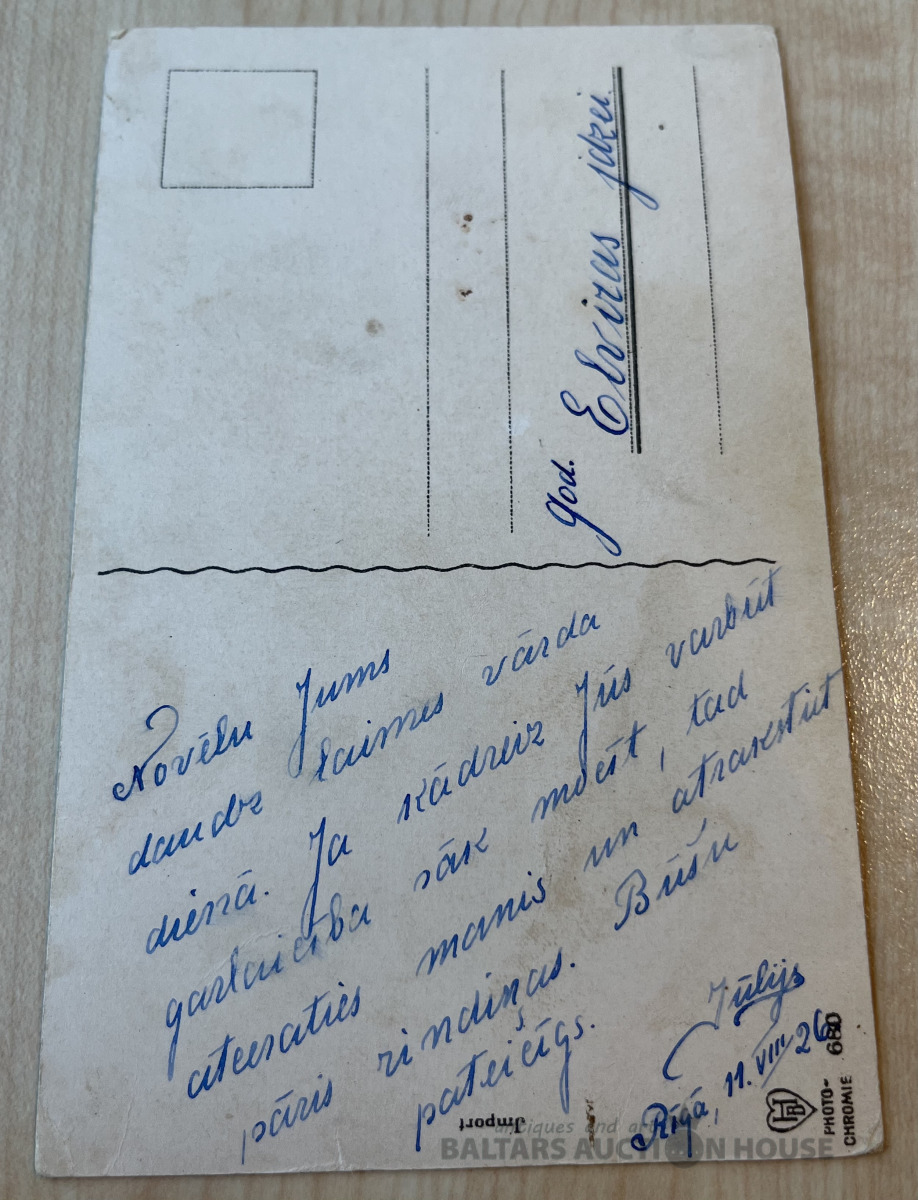 Novēlu Jums
daudz laimes vārda
dienā. Ja kādreiz Jūs varbūt
garlaicība sāk mocīt, tad
atceraties manis un atrakstiet
pāris rindiņas. Būšu
pateicīgs.
Jūlijs
Rīgā, 11. VIII 26
god. Elvīras jdzei
Import
HB
PHOTO-
CHROMIE
680
antiques and art
BALTARS AUCTION HOUSE